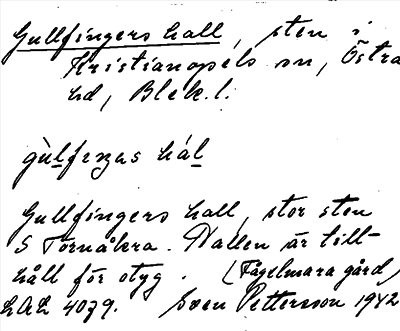 Gullfingers hall, sten i
Kristianopels sn, Östra
hd, Blek. l.
gùlfeŋas hál
Gullfingers hall, stor sten
S Tornåkra. Hallen är till-
håll för otyg. (Fågelmara gård)
LAL 4079. Sven Pettersson 1942